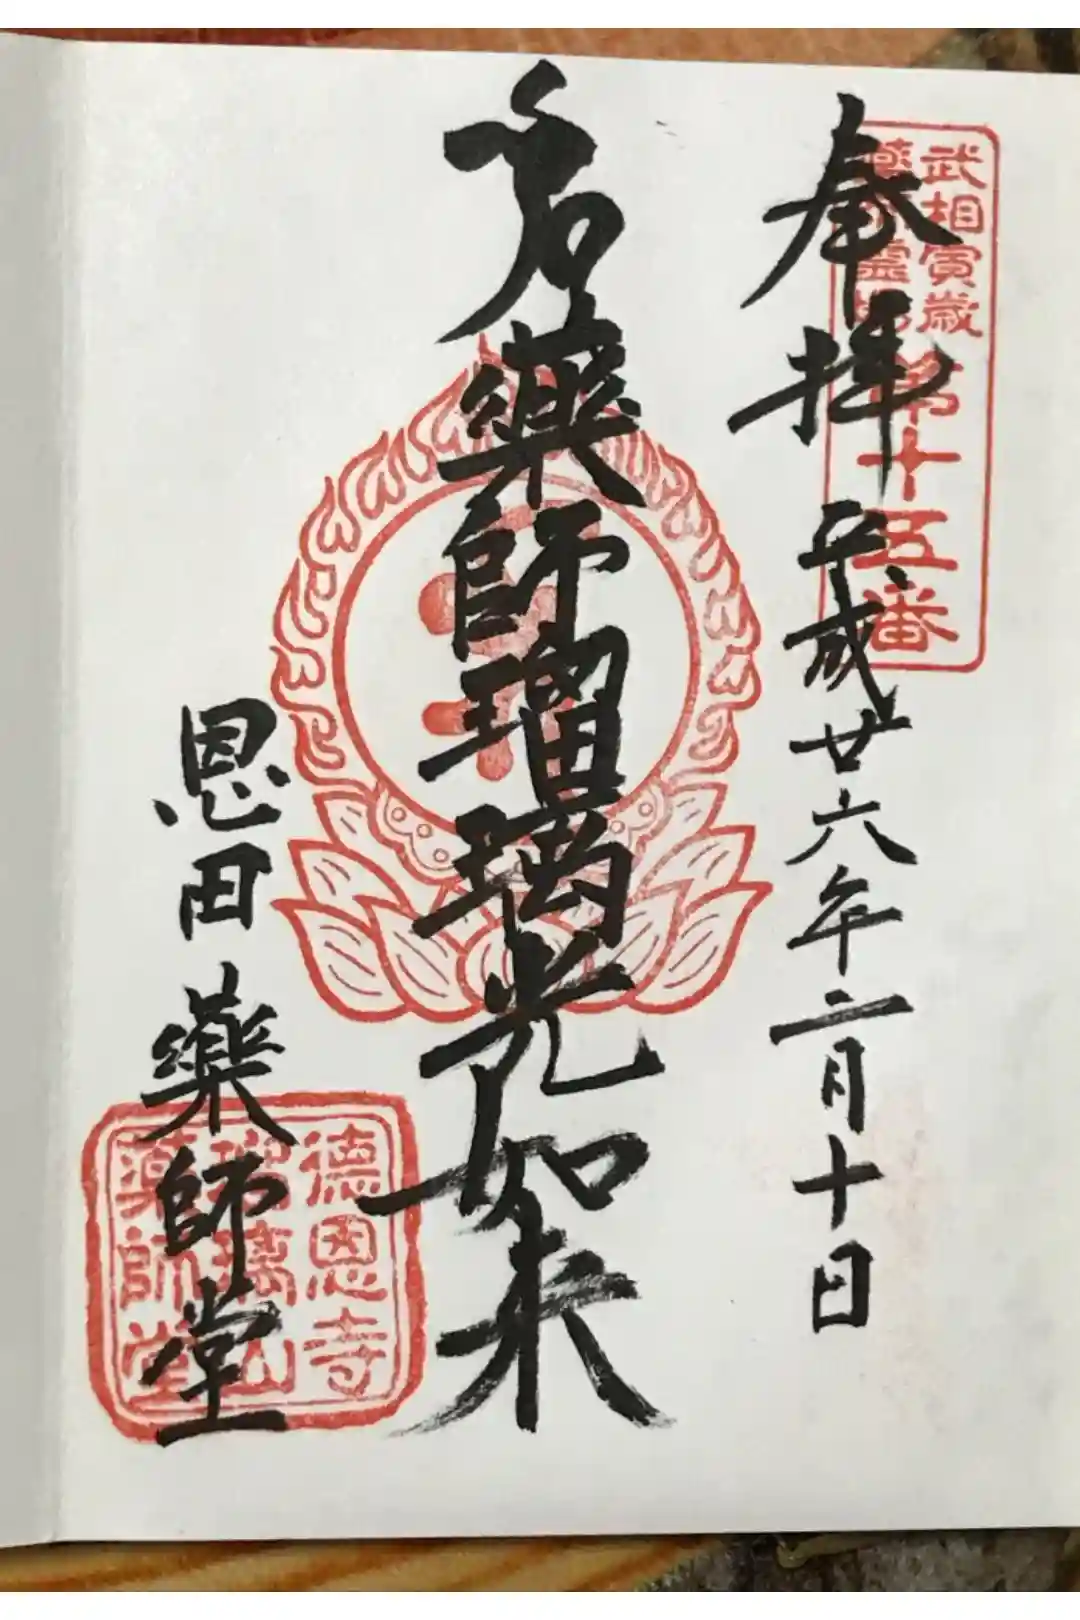 武相寅歳
薬師霊場
第十五番
奉拝 平成廿六年二月十日
名藥師瑠璃光如来
恩田 藥師堂
徳恩寺
瑠璃山
薬師堂